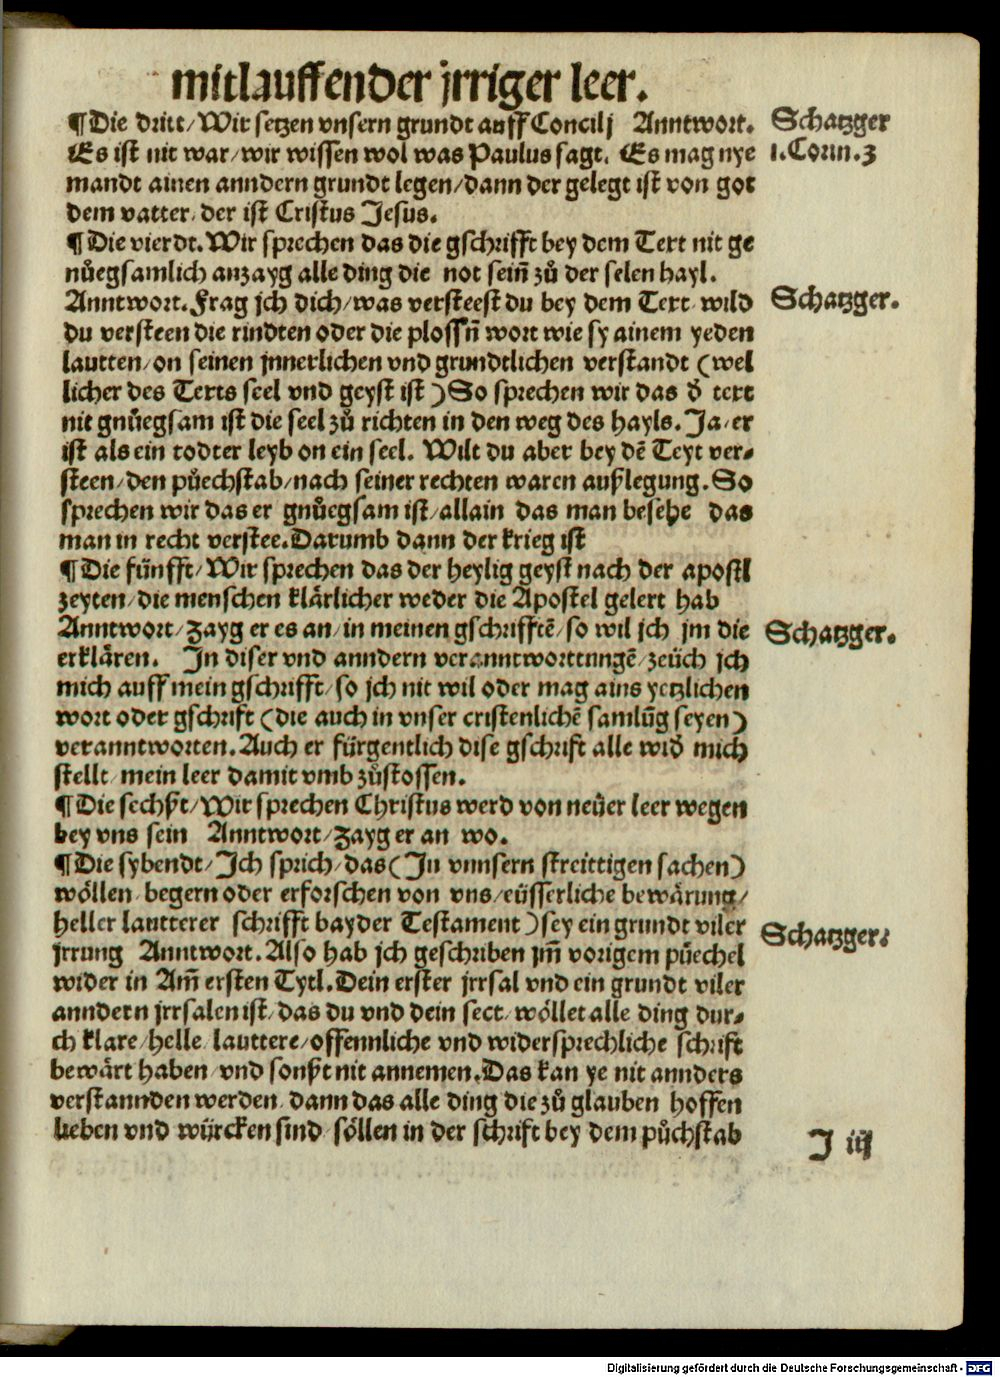 mitlauffender jrriger leer.
¶Die dritt/Wir setzen vnsern grundt auff Concilj Anntwort.
Schatzger
Es ist nit war/wir wissen wol was Paulus sagt. Es mag nye
1.Corin.3
mandt ainen anndern grundt legen/dann der gelegt ist von got
dem vatter/der ist Cristus Jesus.
¶Die vierdt.Wir sprechen das die gschrifft bey dem Text nit ge
nůegsamlich anzayg alle ding die not sein̄ zů der selen hayl.
Anntwort.Frag jch dich/was versteest du bey dem Text/wild
Schatzger.
du versteen die rindten oder die plossn̄ wort wie sy ainem yeden
lautten/on seinen jnnerlichen vnd grundtlichen verstandt (wel
licher des Texts seel vnd geyst ist) So sprechen wir das d̄ text
nit gnůegsam ist die seel zů richten in den weg des hayls. Ja/er
ist als ein todter leyb on ein seel. Wilt du aber bey dē Teyt ver-
steen/den půechstab/nach seiner rechten waren außlegung. So
sprechen wir das er gnůegsam ist/allain das man besehe das
man in recht verstee.Darumb dann der krieg ist
¶Die fünfft/Wir sprechen das der heylig geyst nach der apostl
zeyten/die menschen klärlicher weder die Apostel gelert hab
Anntwort/Zayg er es an/in meinen gschrifftē/so wil jch jm die
Schatzger.
erklären. In diser vnd anndern veranntworttungē/zeüch jch
mich auff mein gschrifft/so jch nit wil oder mag ains yetzlichen
wort oder gschrift (die auch in vnser cristenlichē samlūg seyen)
veranntworten. Auch er fürgentlich dise gschrift alle wid̄ mich
stellt/mein leer damit vmb zůstossen.
¶Die sechßt/Wir sprechen Christus werd von neüer leer wegen
bey vns sein Anntwort/Zayg er an wo.
¶Die sybendt/Ich sprich/das (In vnnsern streittigen sachen)
wöllen/begern oder erforschen von vns/eüsserliche bewärung/
heller lautterer schrifft bayder Testament) sey ein grundt viler
Schatzger.
jrrung Anntwort. Also hab jch geschriben jm̄ vorigem püechel
wider in Am̄ ersten Tytl.Dein erster jrrsal vnd ein grundt viler
anndern jrrsalen ist/das du vnd dein sect/wöllet alle ding dur-
ch klare/helle/lauttere/offennliche vnd widersprechliche schrift
bewärt haben/vnd sonßt nit annemen.Das kan ye nit annders
verstannden werden/dann das alle ding die zů glauben hoffen
lieben vnd würcken sind/söllen in der schrift bey dem půchstab
J iij
Digitalisierung gefördert durch die Deutsche Forschungsgemeinschaft - DFG